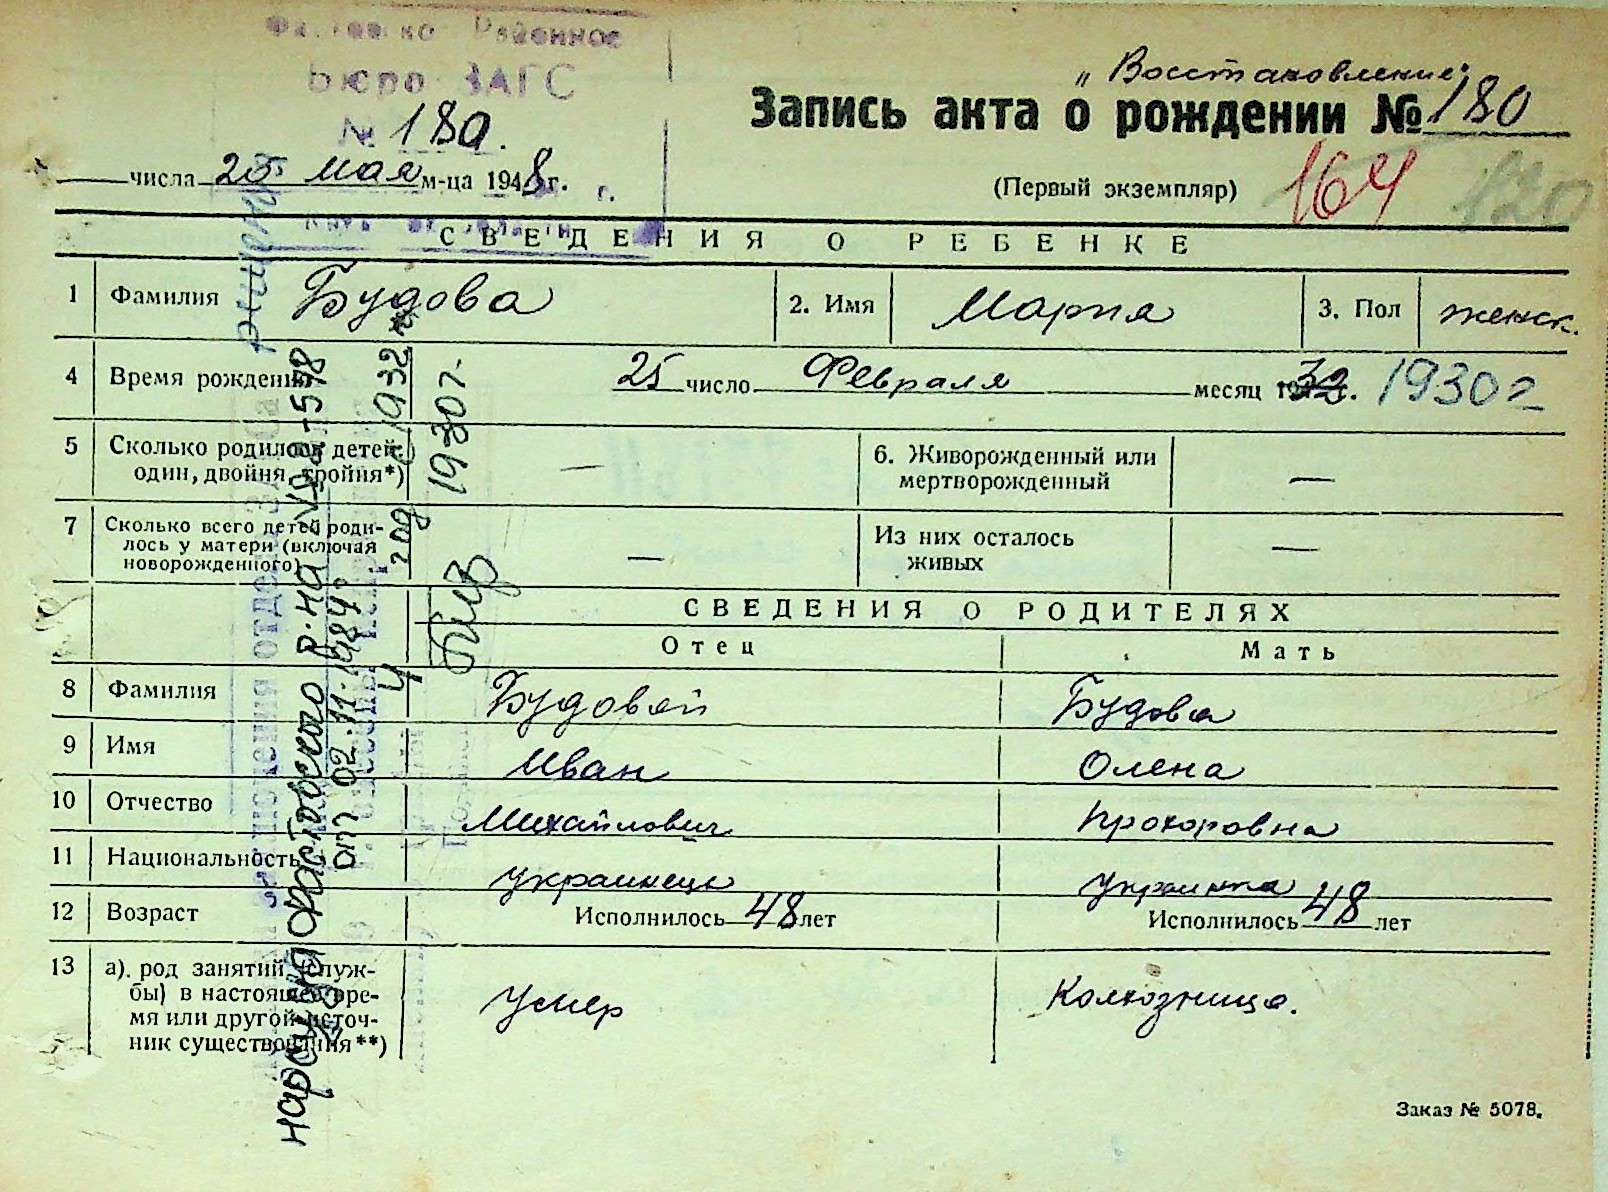 Районное
Бюро ЗАГС
№ 180.
"Восстановление"
Запись акта о рождении № 180
числа 25 мая м-ца 1948 г. г.
(Первый экземпляр) 164 120
СВЕДЕНИЯ О РЕБЕНКЕ
1 Фамилия Будова 2. Имя Мария 3. Пол женск.
4 Время рождения 25 число Февраля месяц 1932 г. 1930 г
5 Сколько родилось детей:
один, двойня, тройня*) —
6. Живорожденный или
мертворожденный —
7 Сколько всего детей роди-
лось у матери (включая
новорожденного) —
Из них осталось
живых —
СВЕДЕНИЯ О РОДИТЕЛЯХ
Отец Мать
8 Фамилия Будовой Будова
9 Имя Иван Олена
10 Отчество Михайлович Прохоровна
11 Национальность украинець украинка
12 Возраст Исполнилось 48 лет Исполнилось 48 лет
13 а). род занятий (служ-
бы) в настоящее вре-
мя или другой источ-
ник существования**)
Умер Колхозница.
нарсуда Фастовского р-на №2-578
от 02.11.1984
год с 1932 на
1930 г.
Заказ № 5078.